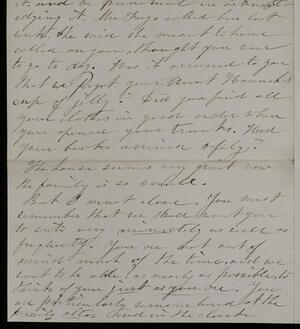 it and be
edging it. Mrs Frye called here last
week. She said she meant to have
called on you, thought you were
to go to day. Has it occurred to you
that we forgot your Aunt Hannah's
cup of jelly? Did you find all
your clothes in good order when
you opened your trunks. Had
your books arrived safely?
The house seems very quiet now
the family is so small.
But I must close. You must
remember that we shall want you
to write very minutely as well as
frequently. You are not out of
mind much of the time, and we
want to be able, as nearly as possible, to
think of you just as you are. You
are particularly remembered at the
family altar and in the closet